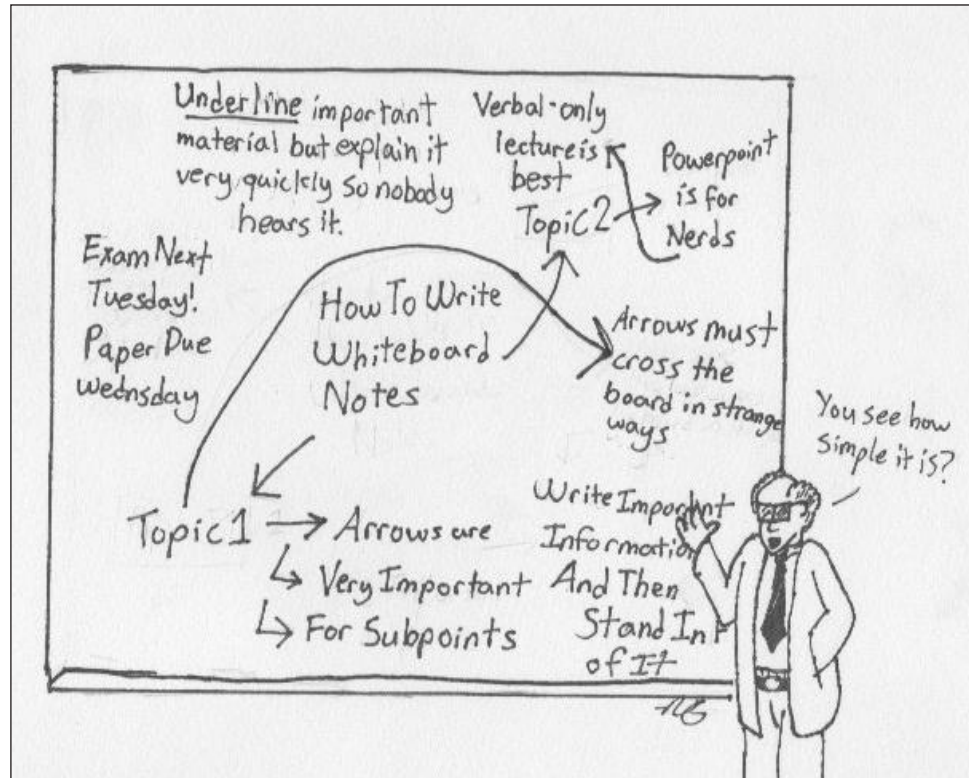 Underline important
material but explain it
very quickly so nobody
hears it.
Verbal-only
lecture is
best
Topic 2
Powerpoint
is for
Nerds
Exam Next
Tuesday!
Paper Due
Wednsday
How To Write
Whiteboard
Notes
Arrows must
cross the
board in strange
ways
You see how
simple it is?
Topic 1
Arrows are
Very Important
For Subpoints
Write Important
Information
And Then
Stand In F
of It